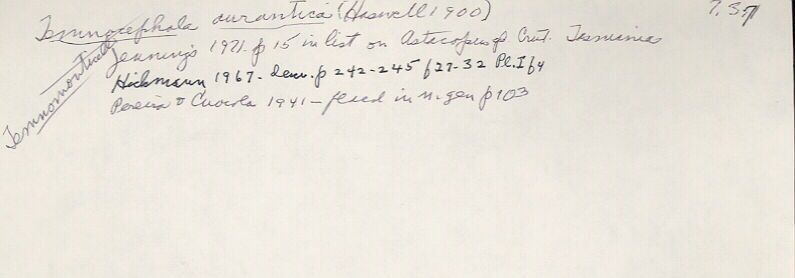 Temnocephala aurantica (Haswell 1900) 7.37
Temnomonticellia
Jennings 1971. p 15 in list on Astacopsis Crust. Tasmania
Hickmann 1967 - descr. p 242-245 f 27-32 Pl. I f 4
Pereira & Cuocolo 1941 - placed in n. gen p 103